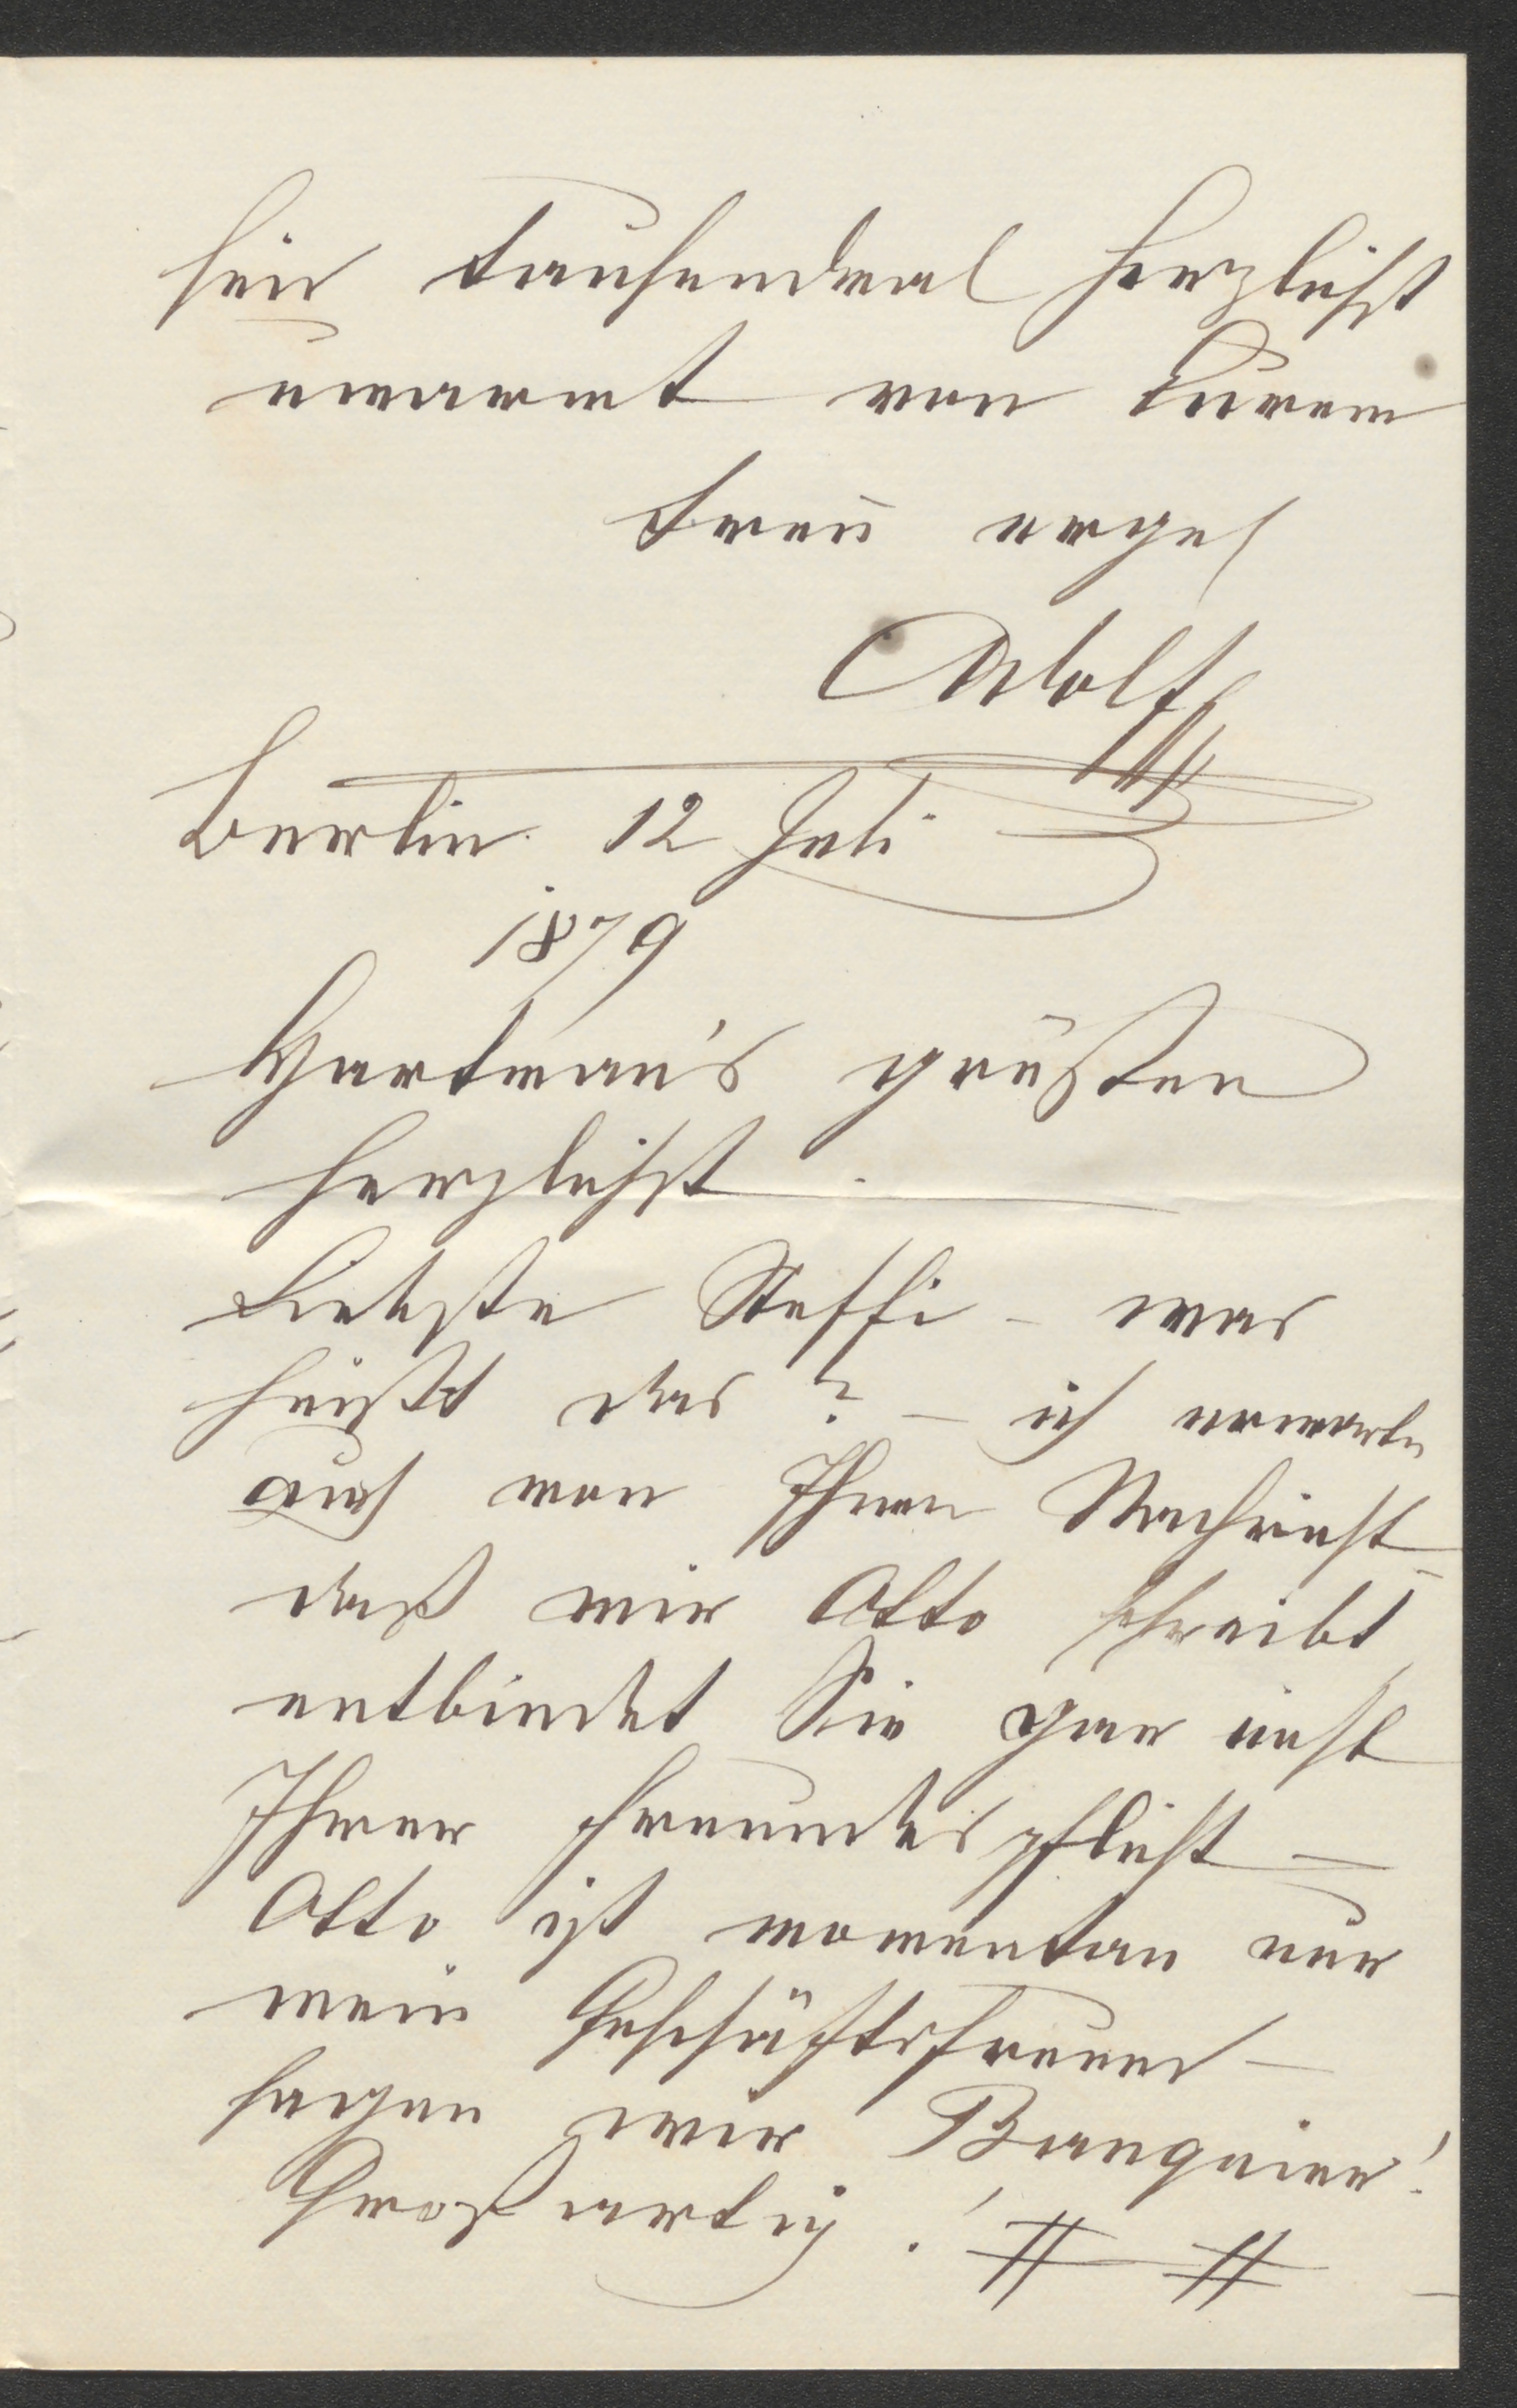 sein tausendmal herzlichst
umarmt von Eurem
treu ergeb
Adolf
Berlin 12 Juli
1879
Hartman's grüßen
herzlichst.
Liebste Steffi – was
heißt das? – ich erwarte
auch von Ihnen Nachricht
daß mir Otto schreibt
entbindet Sie gar nicht
Ihrer Freundespflicht –
Otto ist momentan nur
mein Geschäftsfreund –
sagen wir Banquier!
Großartig!